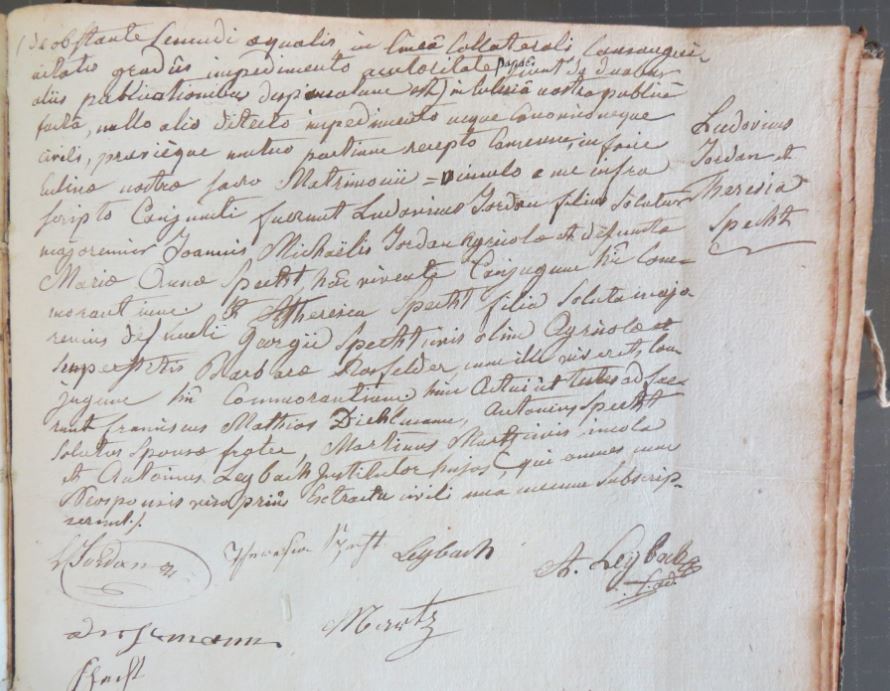 (de obstante secundi aequalis in lineâ Collaterali Consangui-
nitatis gradûs impedimento autoritate papae sicut de duabus
aliis publicationibus dispensatum est) in Ecclesiâ nostra publicè
factâ, nullo alio detecto impedimento neque Canonico neque
civili, praevièque mutuo partium recepto Consensu, in facie
Ecclesiae nostrae sacro Matrimonii = vinculo a me infra
scripto Conjuncti fuerunt Ludovicus Jordan filius solutus
majorennis Joannis Michaëlis Jordan agricolae et defunctae
Mariae Annae Specht, hîc vivente Conjugum hîc Com=
morantium Et Theresia Specht filia soluta majo-
rennis defuncti Georgii Specht civis olim Agricolae et
superstitis Barbarae Rosfelder, cum ille viveret, Con-
jugum hîc Commorantium huic Actui ut testes adfue-
runt franciscus Mathias Diehlmann, Antonius Specht
solutus Sponsae frater, Martinus Martz civis incola
et Antonius Leybach Institutor hujas, qui omnes cum
Neosponsis viso priùs Extractu civili una mecum subscrip-
serunt./.
Ludovicus
Jordan et
Theresia
Specht
L Jordan
Theresia Specht
Leybach
A. Leybach
Martz
Specht